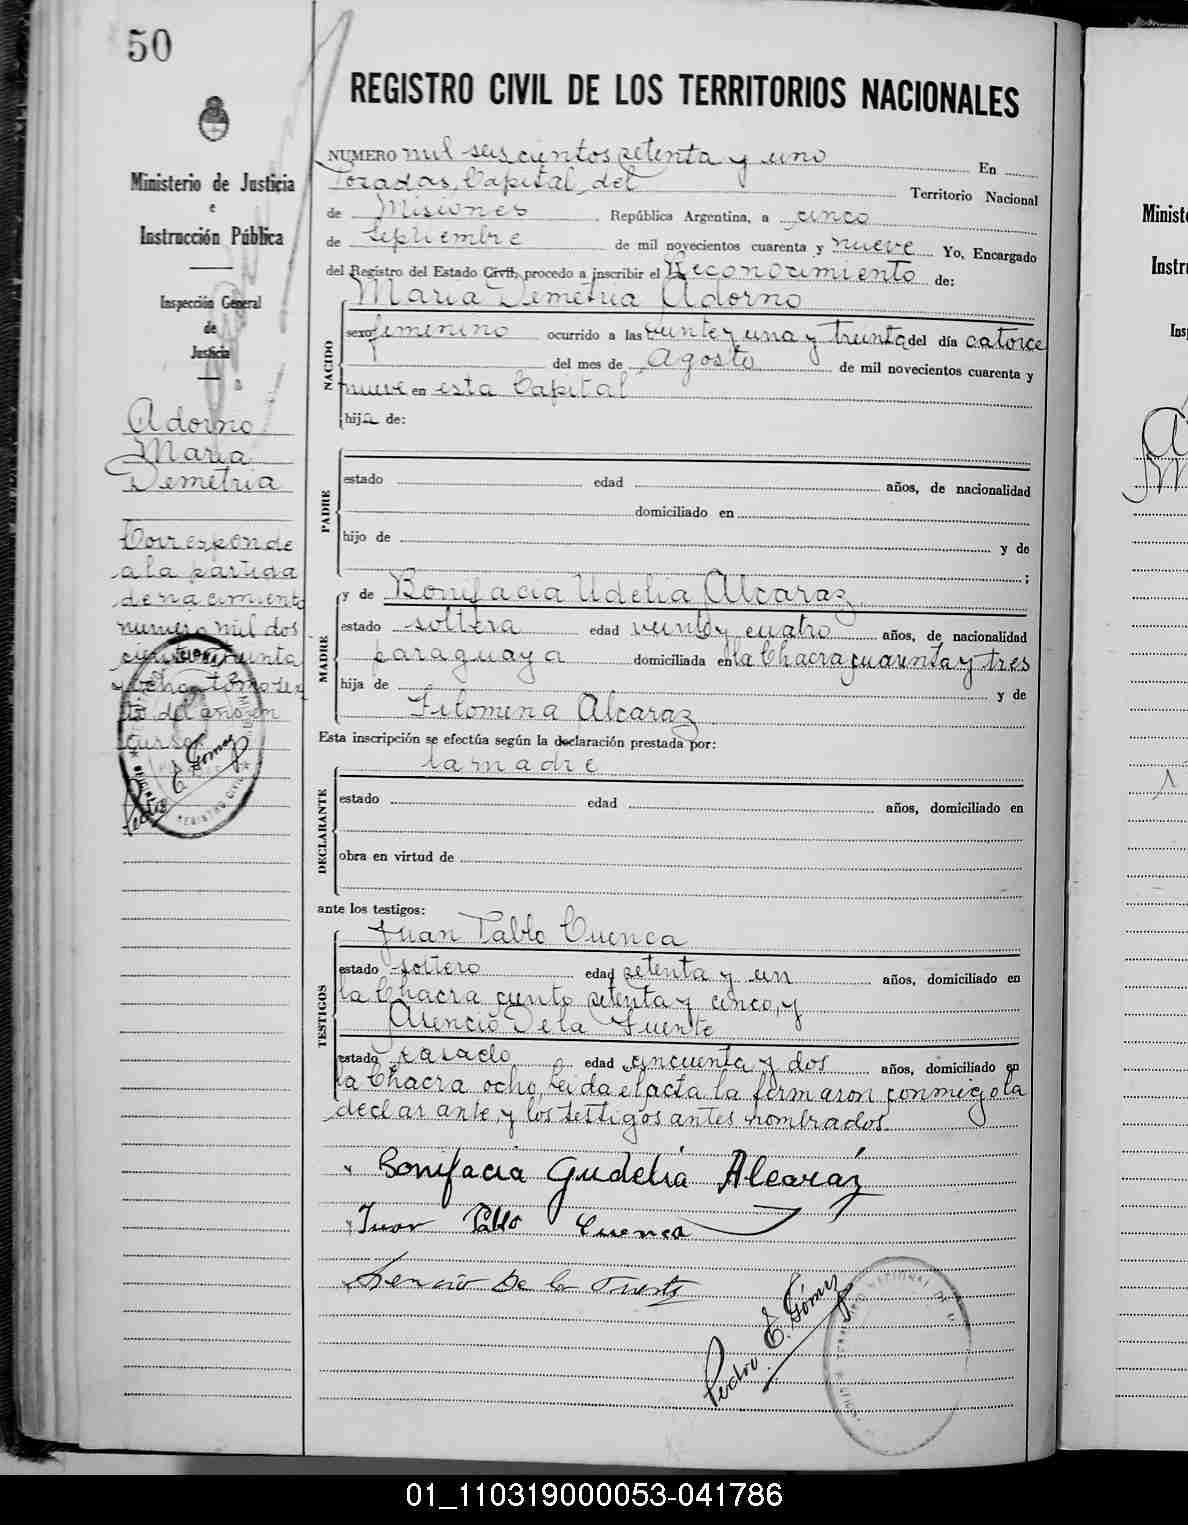 50
REGISTRO CIVIL DE LOS TERRITORIOS NACIONALES
Ministerio de Justicia
e
Instrucción Pública
Inspección General
de
Justicia
Adorno
Maria
Demetria
Corresponde
a la partida
de nacimiento
numero mil dos
y ocho tomo
del año en
curso
Pedro E. Gómez
NUMERO mil seiscientos setenta y uno En
Posadas, Capital del Territorio Nacional
de Misiones República Argentina, a cinco
de Septiembre de mil novecientos cuarenta y nueve Yo, Encargado
del Registro del Estado Civil, procedo a inscribir el Reconocimiento de:
Maria Demetria Adorno
NACIDO
sexo femenino ocurrido a las veinte y una y treinta del día catorce
del mes de Agosto de mil novecientos cuarenta y
nueve en esta Capital
hija de:
PADRE
estado edad años, de nacionalidad
domiciliado en
hijo de y de
;
MADRE
y de Bonifacia Udelia Alcaraz
estado soltera edad veinte y cuatro años, de nacionalidad
paraguaya domiciliada en la Chacra cuarenta y tres
hija de y de
Filomena Alcaraz
Esta inscripción se efectúa según la declaración prestada por:
la madre
DECLARANTE
estado edad años, domiciliado en
obra en virtud de
ante los testigos:
TESTIGOS
Juan Pablo Cuenca
estado soltero edad setenta y un años, domiciliado en
la Chacra ciento setenta y cinco, y
Asencio De la Fuente
estado casado edad cincuenta y dos años, domiciliado en
la Chacra ocho, Leida el acta la firmaron conmigo la
declarante, y los testigos antes nombrados.
Bonifacia Gudelia Alcaráz
Juan Pablo Cuenca
Asencio De la Fuente
Pedro E. Gómez
01_110319000053-041786